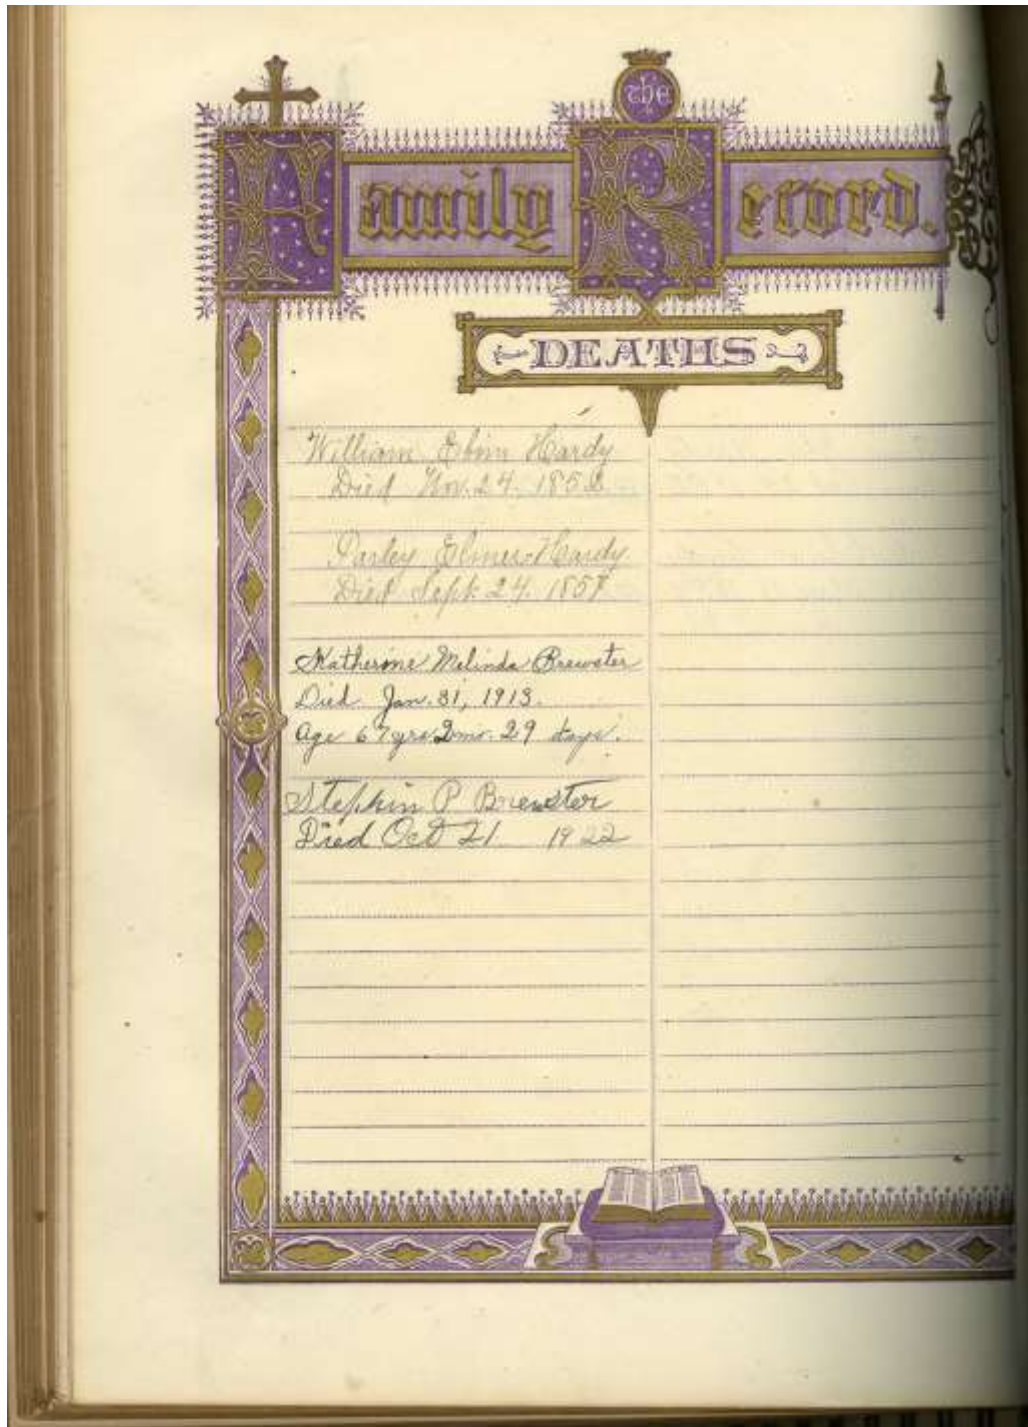 the
Family Record.
DEATHS
William Hardy
Died Nov. 24. 185
Parley Elmer Hardy
Died Sept 24. 185
Katherine Melinda Brewster
Died Jan. 31, 1913.
Age 67 yrs 2 mo. 29 days.
Stephin P Brewster
Died Oct 21 1922